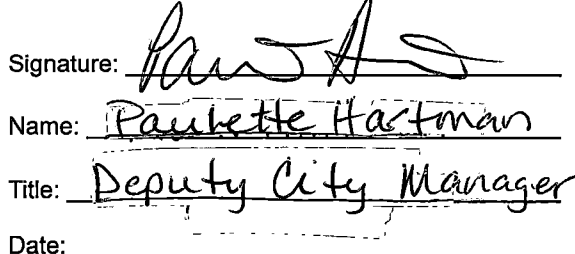 Signature:
Name: Paulette Hartman
Title: Deputy City Manager
Date: